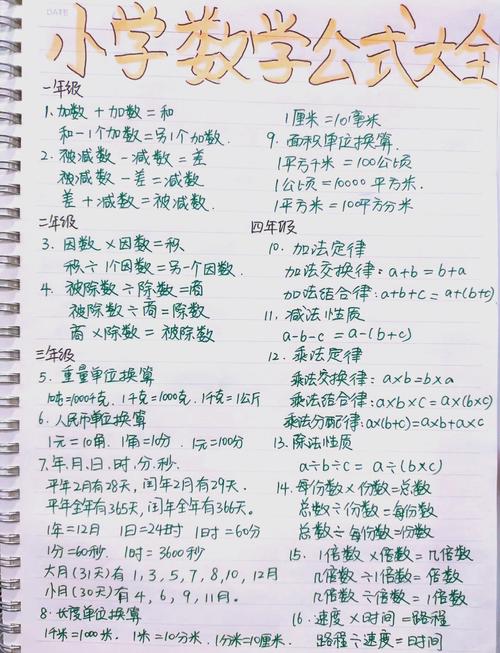 DATE
小学数学公式大全
一年级
1. 加数 + 加数 = 和
和 - 1个加数 = 另1个加数.
2. 被减数 - 减数 = 差
被减数 - 差 = 减数
差 + 减数 = 被减数.
二年级
3. 因数 × 因数 = 积
积 ÷ 1个因数 = 另一个因数.
4. 被除数 ÷ 除数 = 商
被除数 ÷ 商 = 除数
商 × 除数 = 被除数
三年级
5. 重量单位换算
1吨=1000千克 1千克=1000克. 1千克=1公斤
6. 人民币单位换算
1元=10角. 1角=10分 1元=100分
7. 年.月.日.时.分.秒.
平年2月有28天, 闰年2月有29天.
平年全年有365天, 闰年全年有366天.
1年=12月 1日=24时 1时=60分
1分=60秒. 1时=3600秒
大月(31天)有 1, 3, 5, 7, 8, 10, 12月
小月(30天)有 4, 6, 9, 11月.
8. 长度单位换算
1千米=1000米. 1米=10分米. 1分米=10厘米.
1厘米=10毫米
9. 面积单位换算.
1平方千米=100公顷
1公顷=10000平方米.
1平方米=10平方分米
四年级
10. 加法定律
加法交换律: a+b=b+a
加法结合律: a+b+c=a+(b+c)
11. 减法性质
a-b-c=a-(b+c)
12. 乘法定律
乘法交换律: a×b=b×a
乘法结合律: a×b×c=a×(b×c)
乘法分配律: a×(b+c)=a×b+a×c
13. 除法性质
a÷b÷c=a÷(b×c)
14. 每份数×份数=总数
总数÷份数=每份数
总数÷每份数=份数
15. 1倍数×倍数=几倍数
几倍数÷1倍数=倍数
几倍数÷倍数=1倍数
16. 速度×时间=路程
路程÷速度=时间